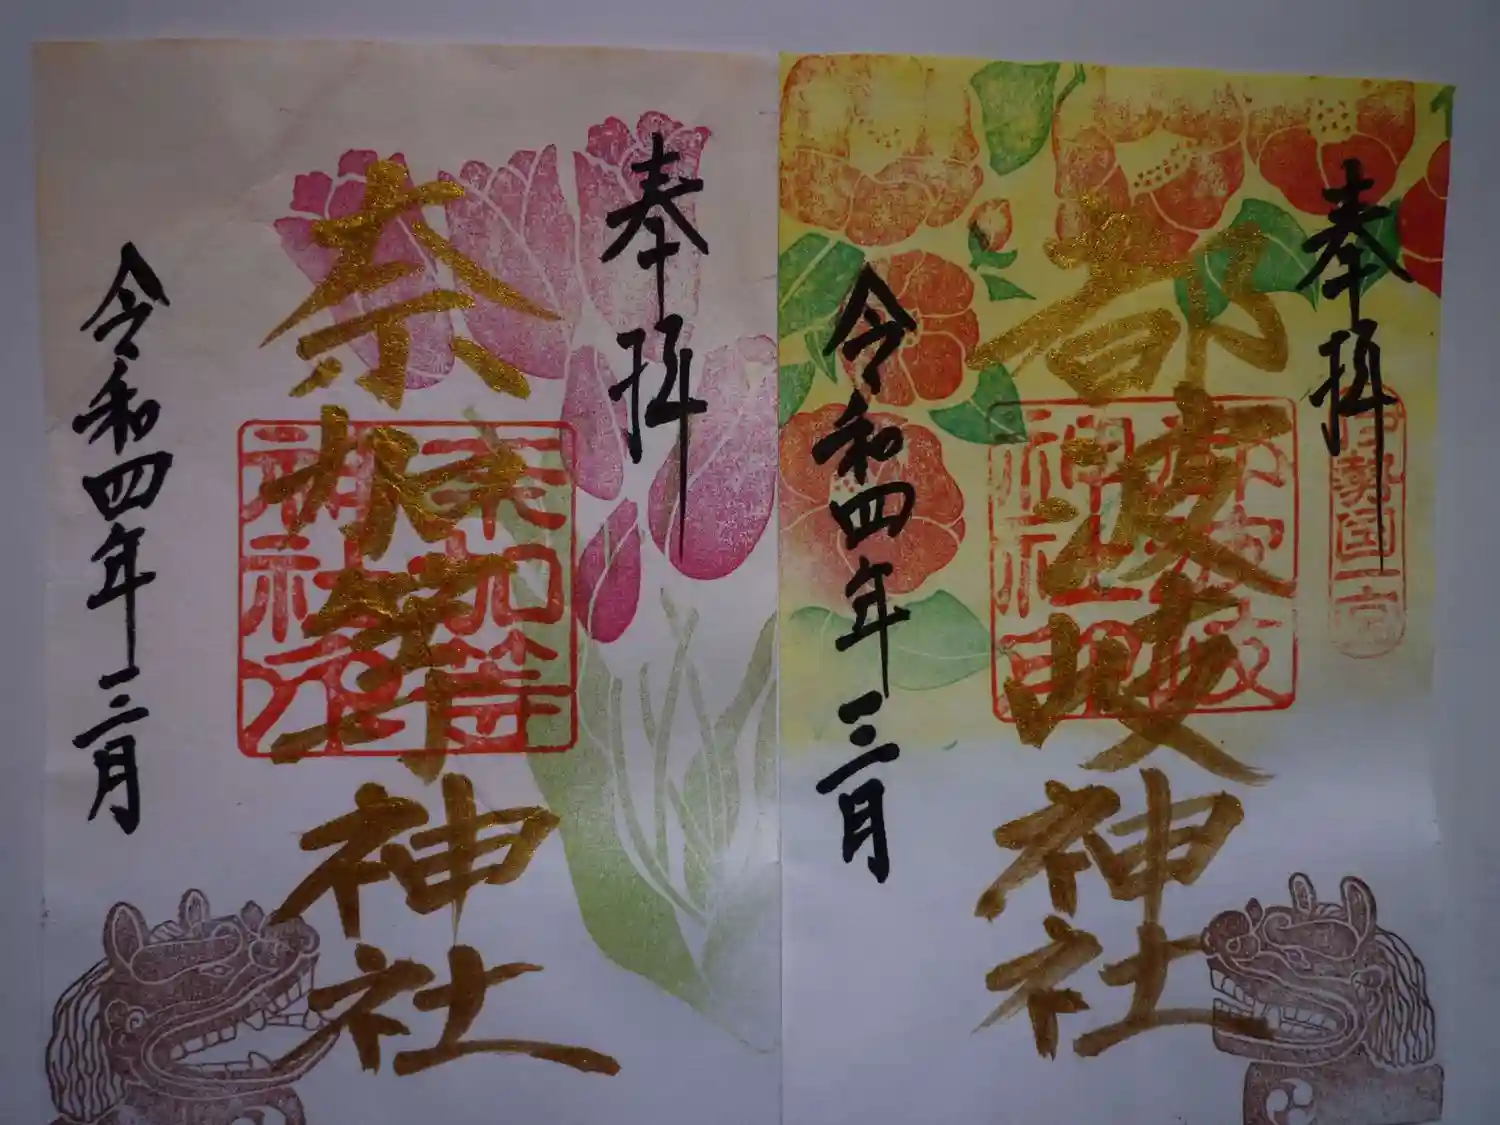 奉拝
伊勢国一宮
都波岐神社
令和四年三月
奉拝
奈加等神社
奈加等
神社印
令和四年三月